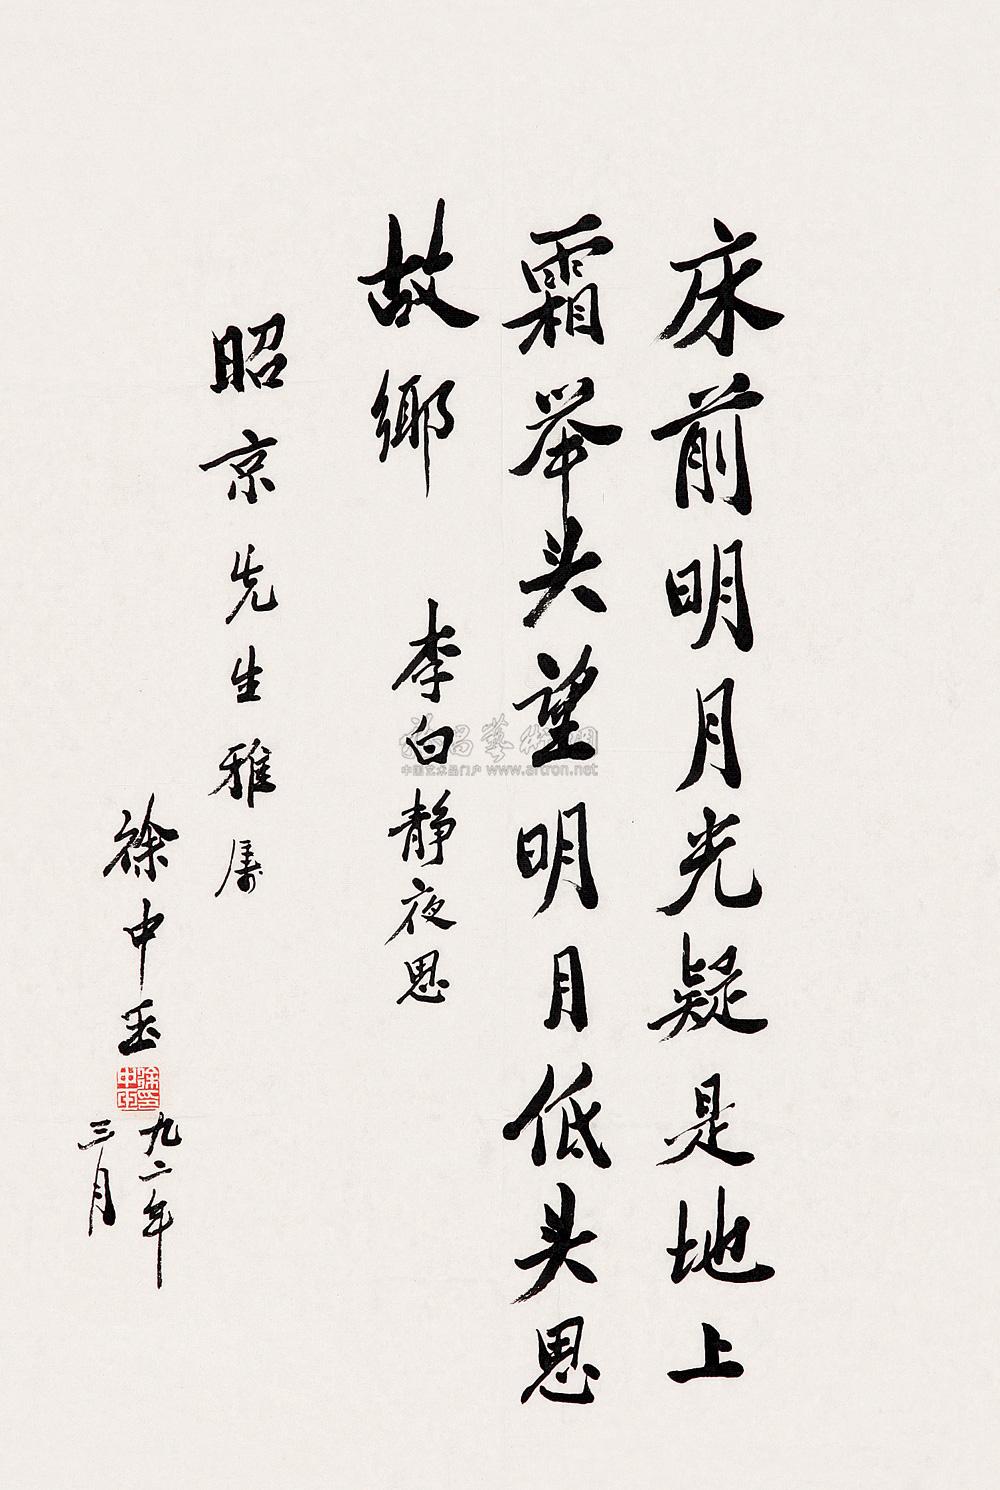 床前明月光疑是地上
霜举头望明月低头思
故乡 李白静夜思
昭京先生雅属
徐中玉
九二年
三月
中国艺术品门户 www.artron.net